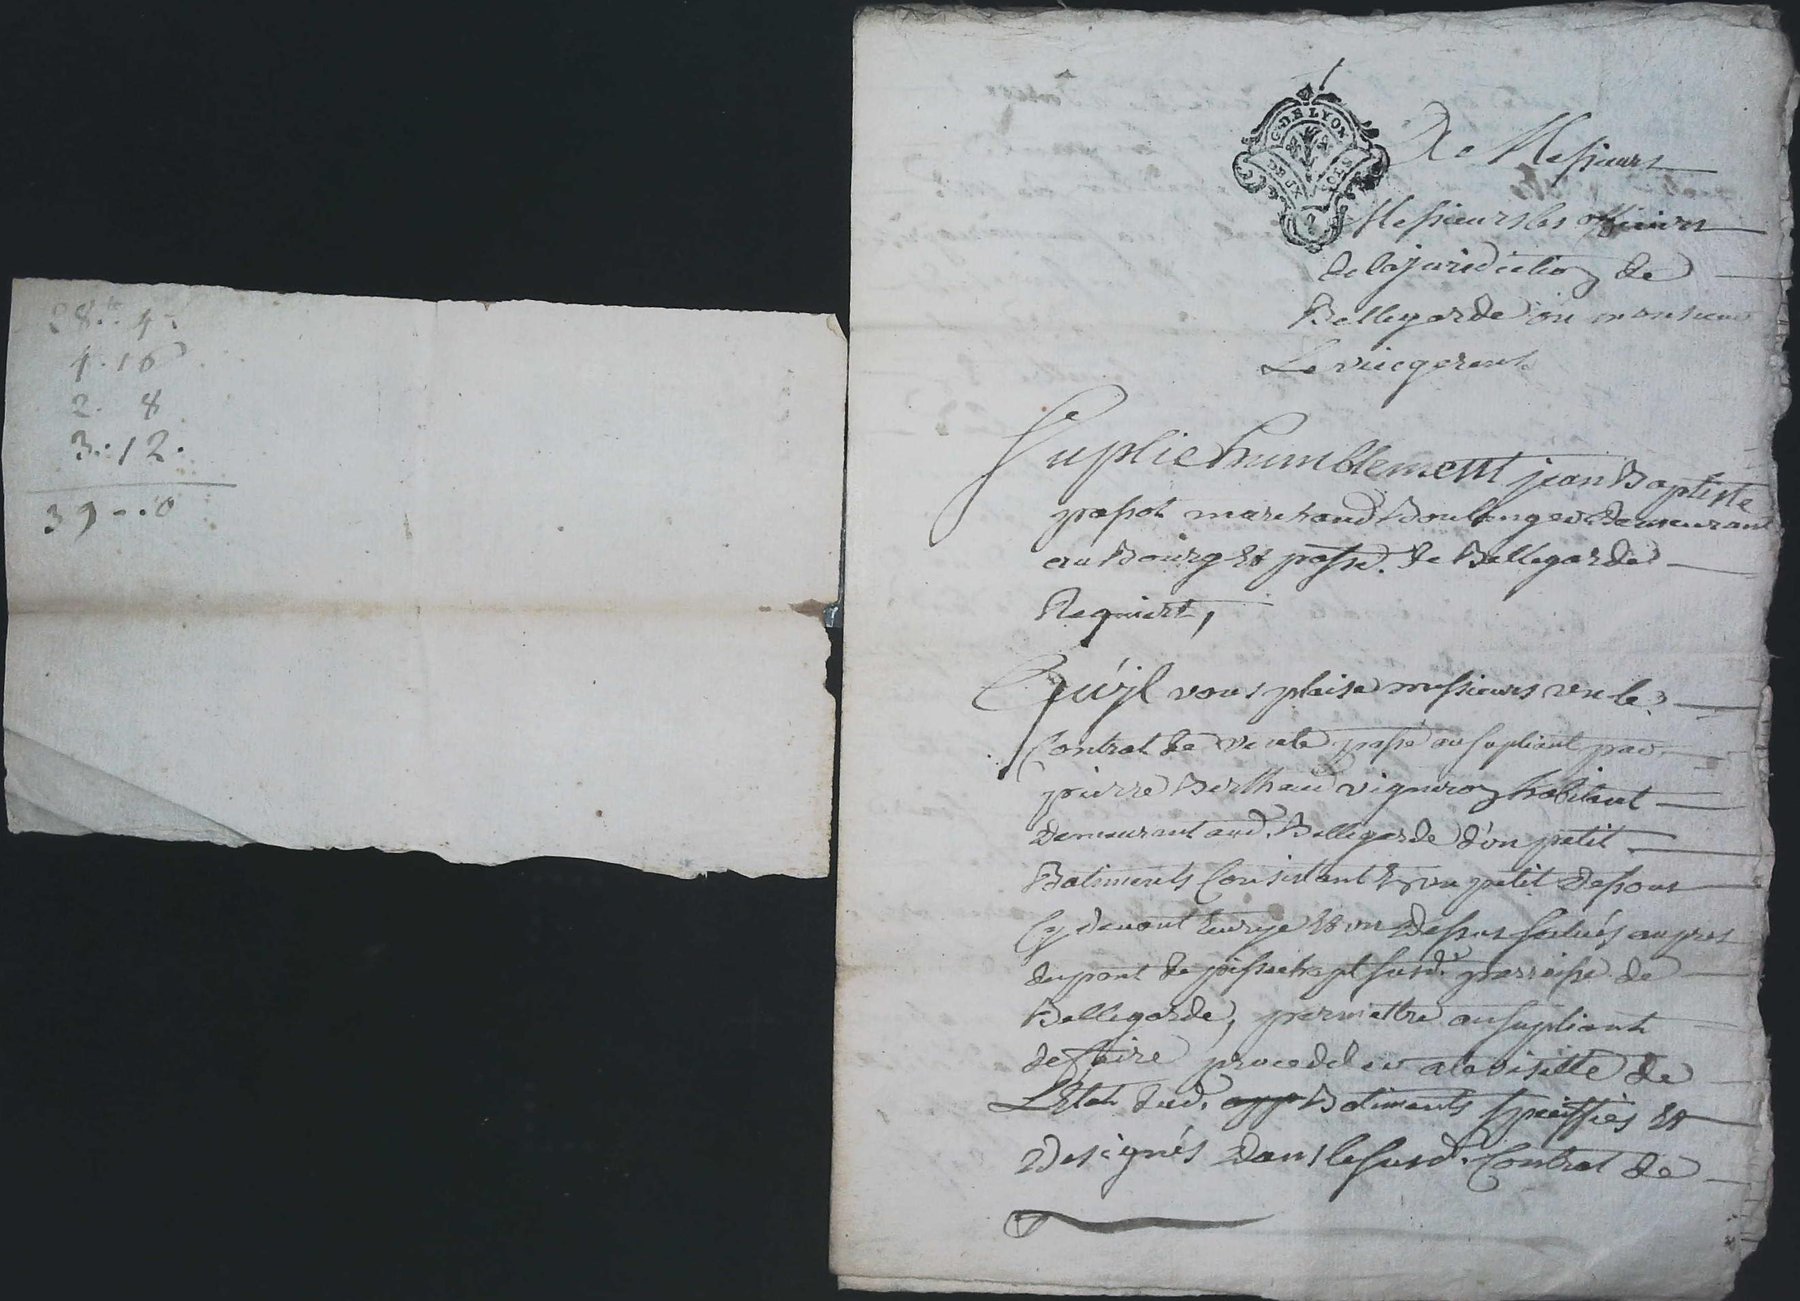 28.tt 4.
4. 16
2. 8
3. 12.
39 - . 0
G. DE LYON
DEUX SOLS
A Messieurs
Messieurs les officiers
de la juridiction de
Bellegarde ou monsieur
Le vicegerent
Suplie humblement jean Baptiste
passot marchand Boulenger Demeurant
au Bourg et passe. de Bellegarde
Requiert,
Qu'yl vous plaise messieurs vu le
Contrat de vente passé au supliant par
pierre Berthaud vigneron habitant
Demeurant aud. Bellegarde d'on petit
Batiments Consistant En un petit dessous
devant et un Dessus situés aupres
du pont de susd. parroisse de
Bellegarde, permettre au supliant
de faire proceder a la visitte de
L'Etat dud. Batiments speciffiés et
Designés dans le susd. Contrat de